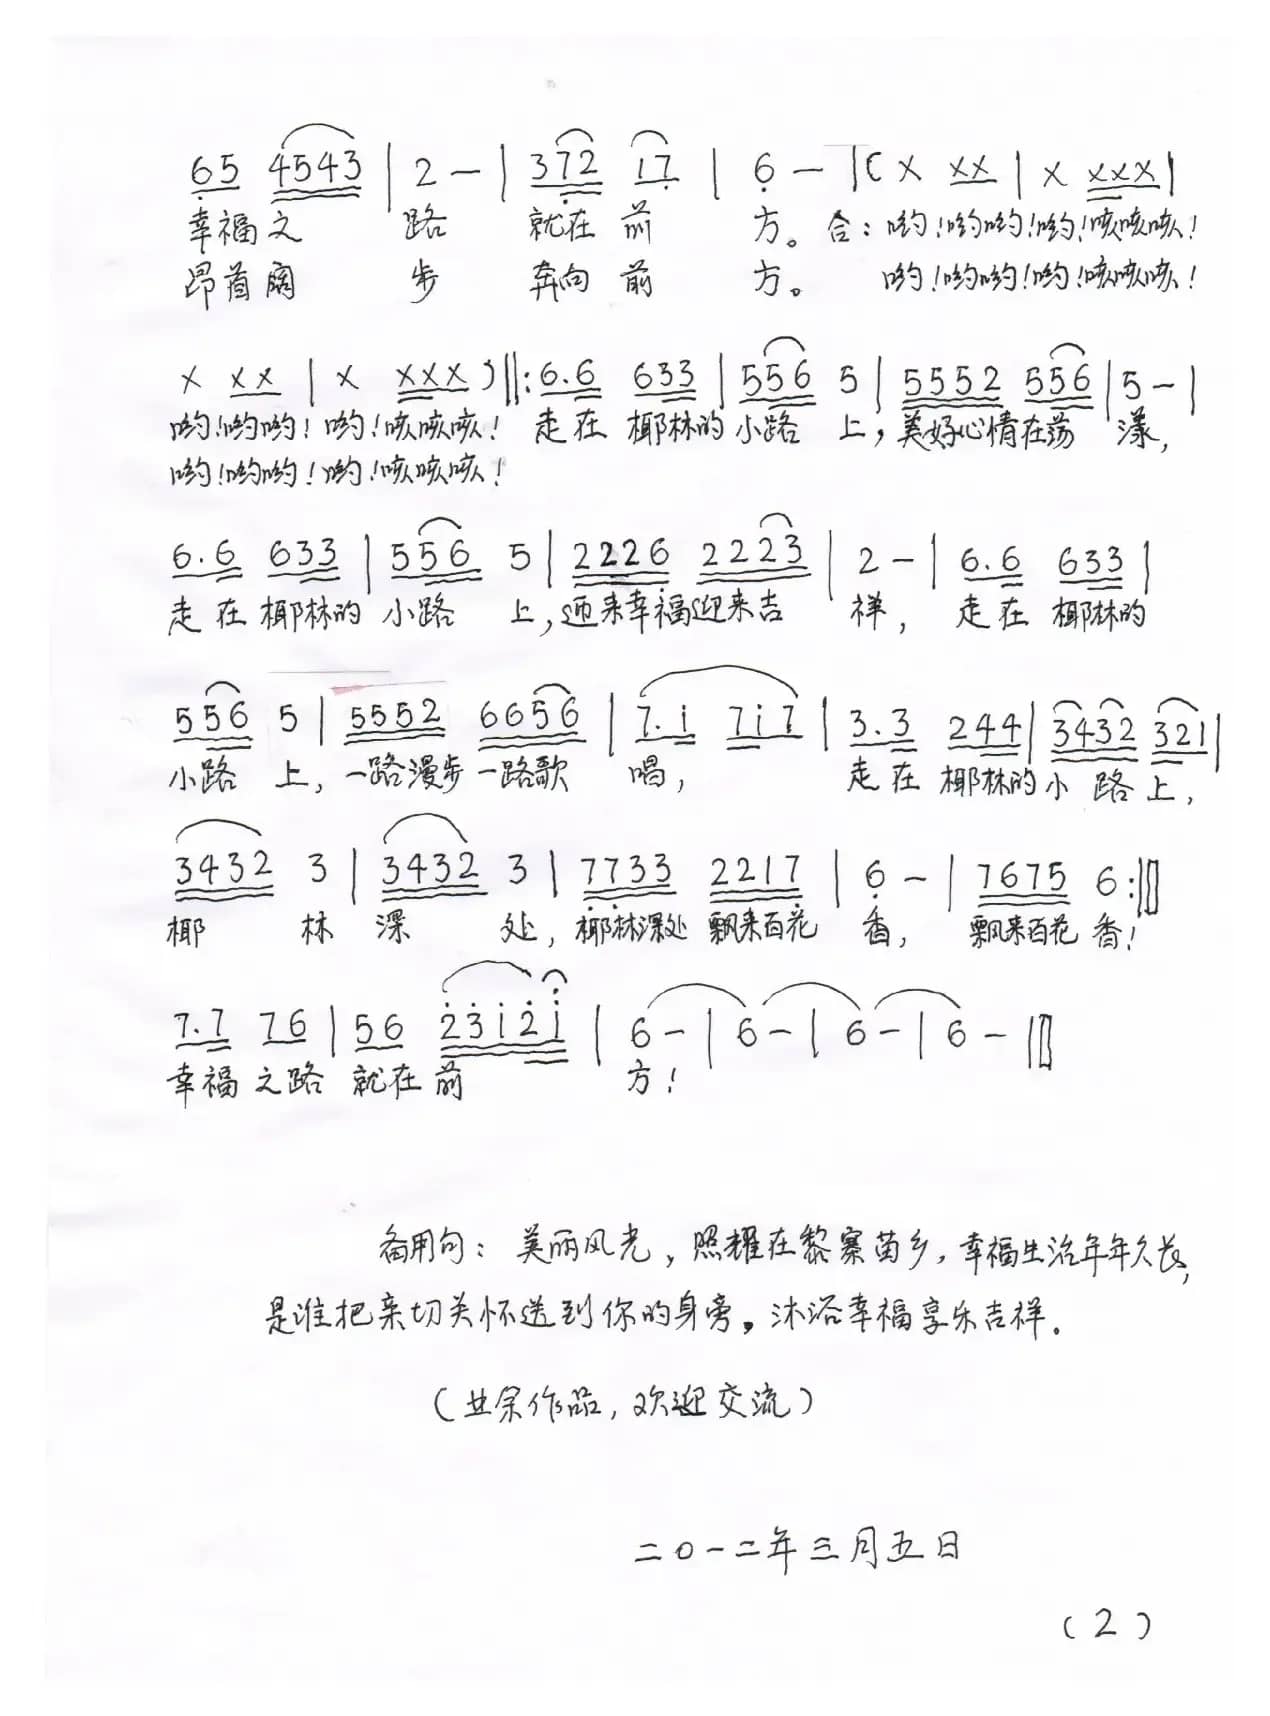 65 4543 | 2 — | 372 17 | 6 — |( X XX | X XXX |
幸福之 路 就在 前 方。合：哟！哟哟！哟！咳咳咳！
昂首阔 步 奔向 前 方。 哟！哟哟！哟！咳咳咳！
X XX | X XXX )‖: 6.6 633 | 556 5 | 5552 556 | 5 — |
哟！哟哟！哟！咳咳咳！ 走在 椰林的 小路 上，美好心情在荡 漾，
哟！哟哟！哟！咳咳咳！
6.6 633 | 556 5 | 2226 2223 | 2 — | 6.6 633 |
走在 椰林的 小路 上，迎来幸福迎来吉 祥， 走在 椰林的
556 5 | 5552 6656 | 7.i 7i7 | 3.3 244 | 3432 321 |
小路 上，一路漫步一路歌 唱， 走在 椰林的 小路上，
3432 3 | 3432 3 | 7733 2217 | 6 — | 7675 6 :‖
椰 林 深 处，椰林深处 飘来百花 香， 飘来百花 香！
7.7 76 | 56 23i2i | 6 — | 6 — | 6 — | 6 — ‖
幸福 之路 就在前 方！
备用句：美丽风光，照耀在黎寨苗乡，幸福生活年年久长，
是谁把亲切关怀送到你的身旁。沐浴幸福享乐吉祥。
（业余作品，欢迎交流）
二〇一二年三月五日
（2）